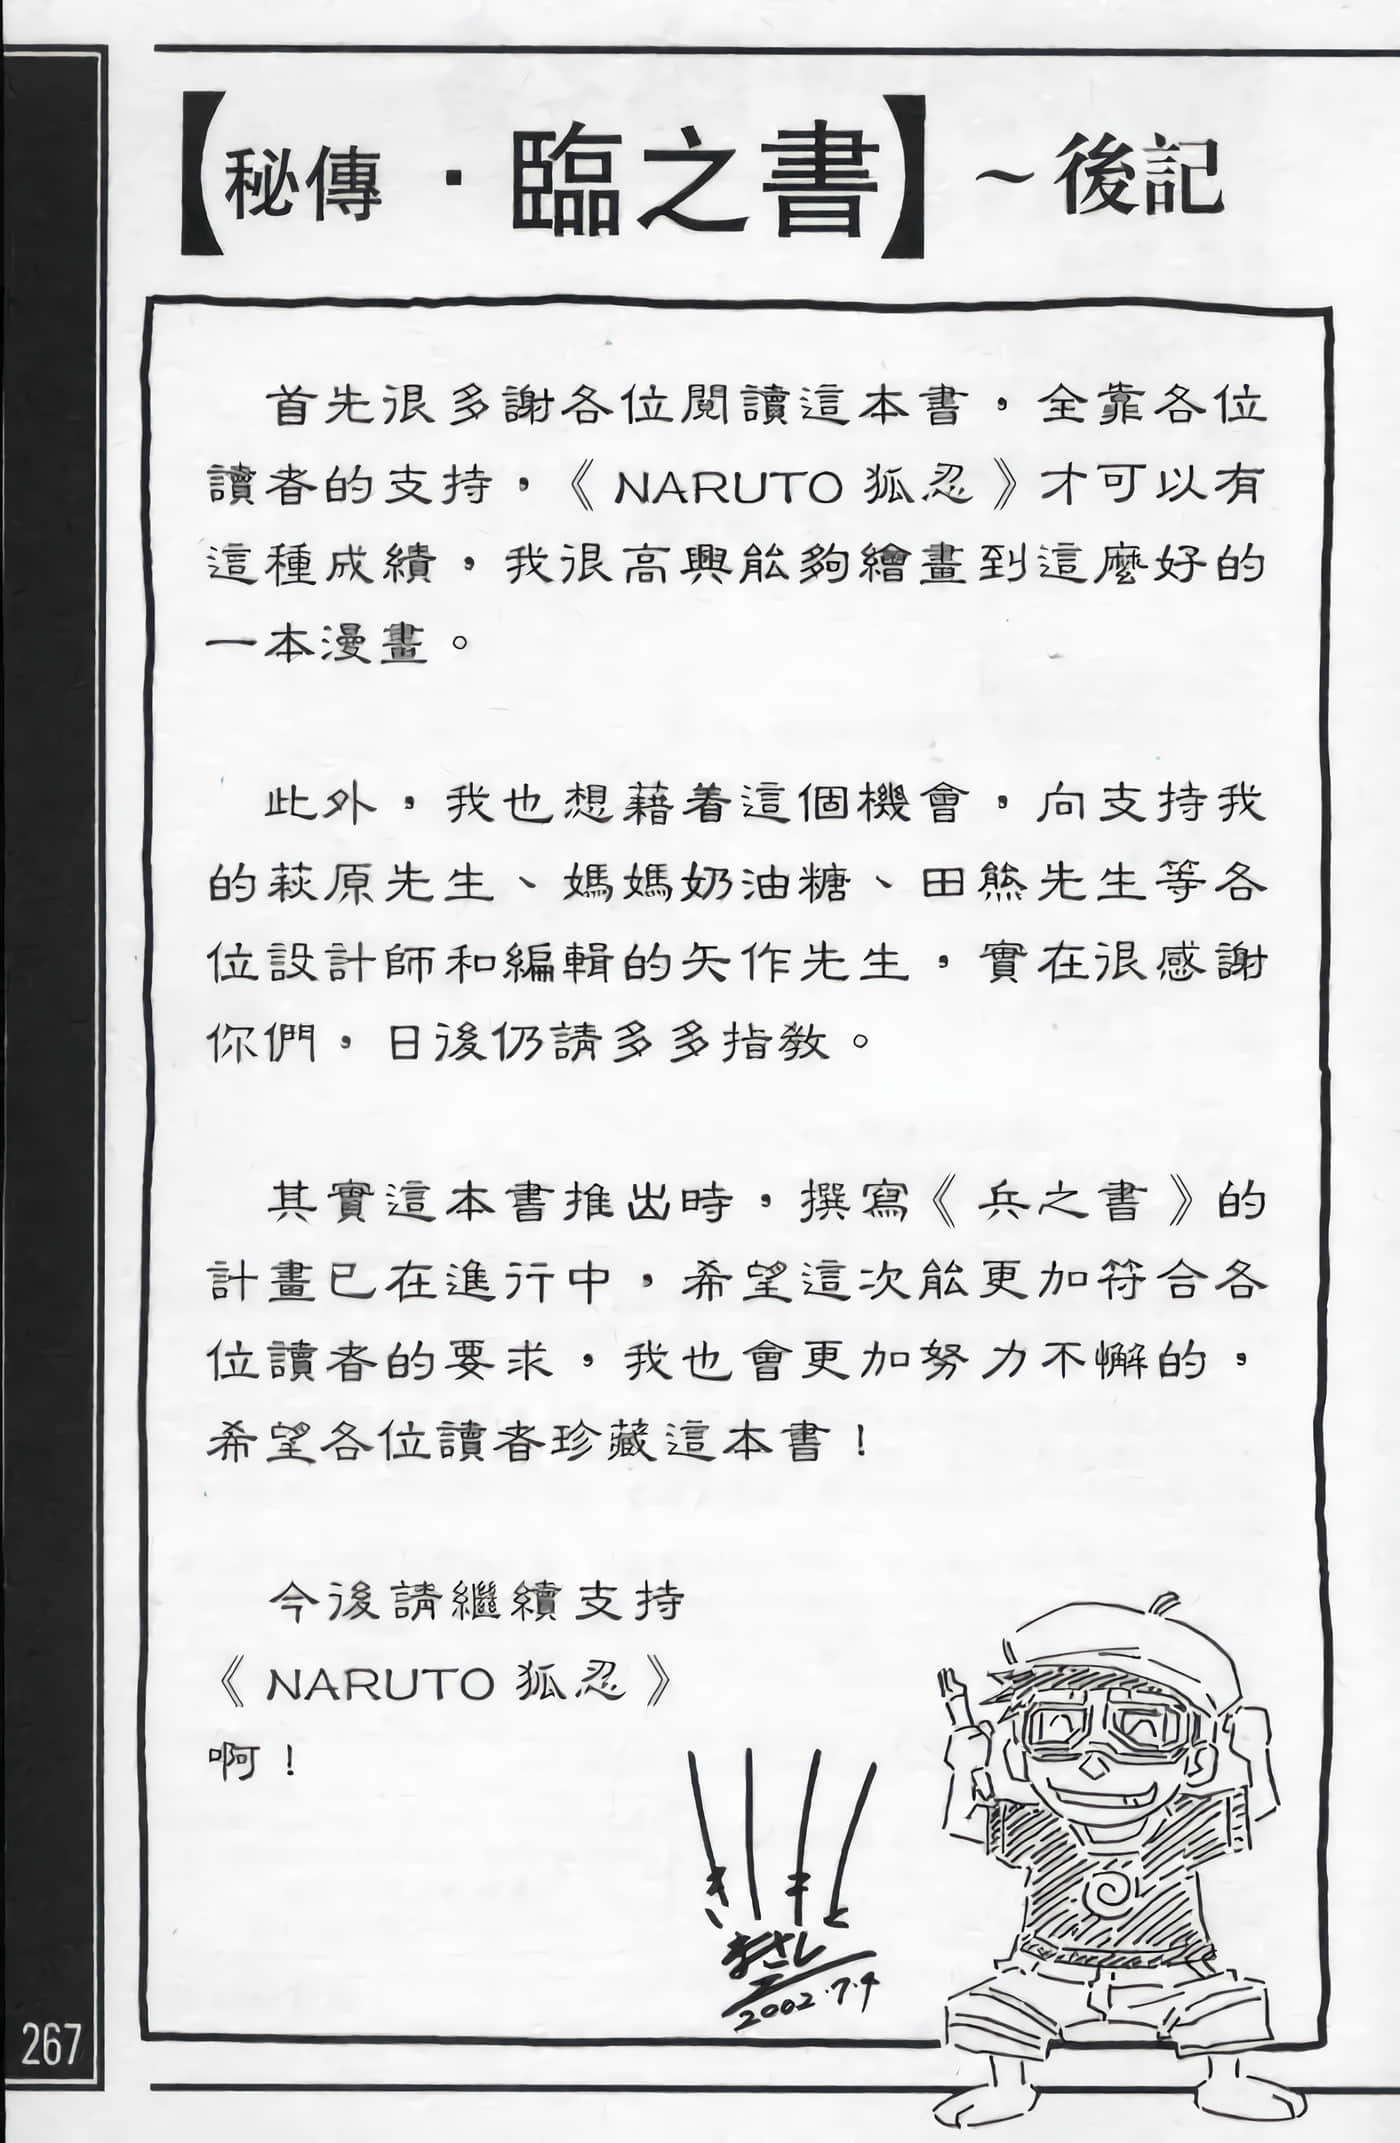 【秘傳・臨之書】～後記
首先很多謝各位閱讀這本書，全靠各位
讀者的支持，《NARUTO 狐忍》才可以有
這種成績，我很高興能夠繪畫到這麼好的
一本漫畫。
此外，我也想藉着這個機會，向支持我
的萩原先生、媽媽奶油糖、田熊先生等各
位設計師和編輯的矢作先生，實在很感謝
你們，日後仍請多多指教。
其實這本書推出時，撰寫《兵之書》的
計畫已在進行中，希望這次能更加符合各
位讀者的要求，我也會更加努力不懈的，
希望各位讀者珍藏這本書！
今後請繼續支持
《NARUTO 狐忍》
啊！
きしもと
まさし
2002.7.4
267